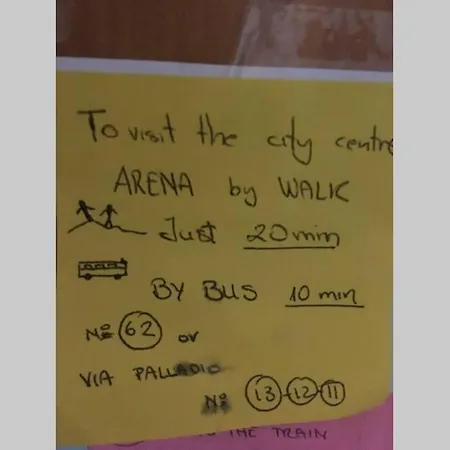 To visit the city centre
ARENA by WALK
Just 20 min
BY BUS 10 min
Nº 62 or
VIA PALLADIO
Nº 13-12-11
THE TRAIN